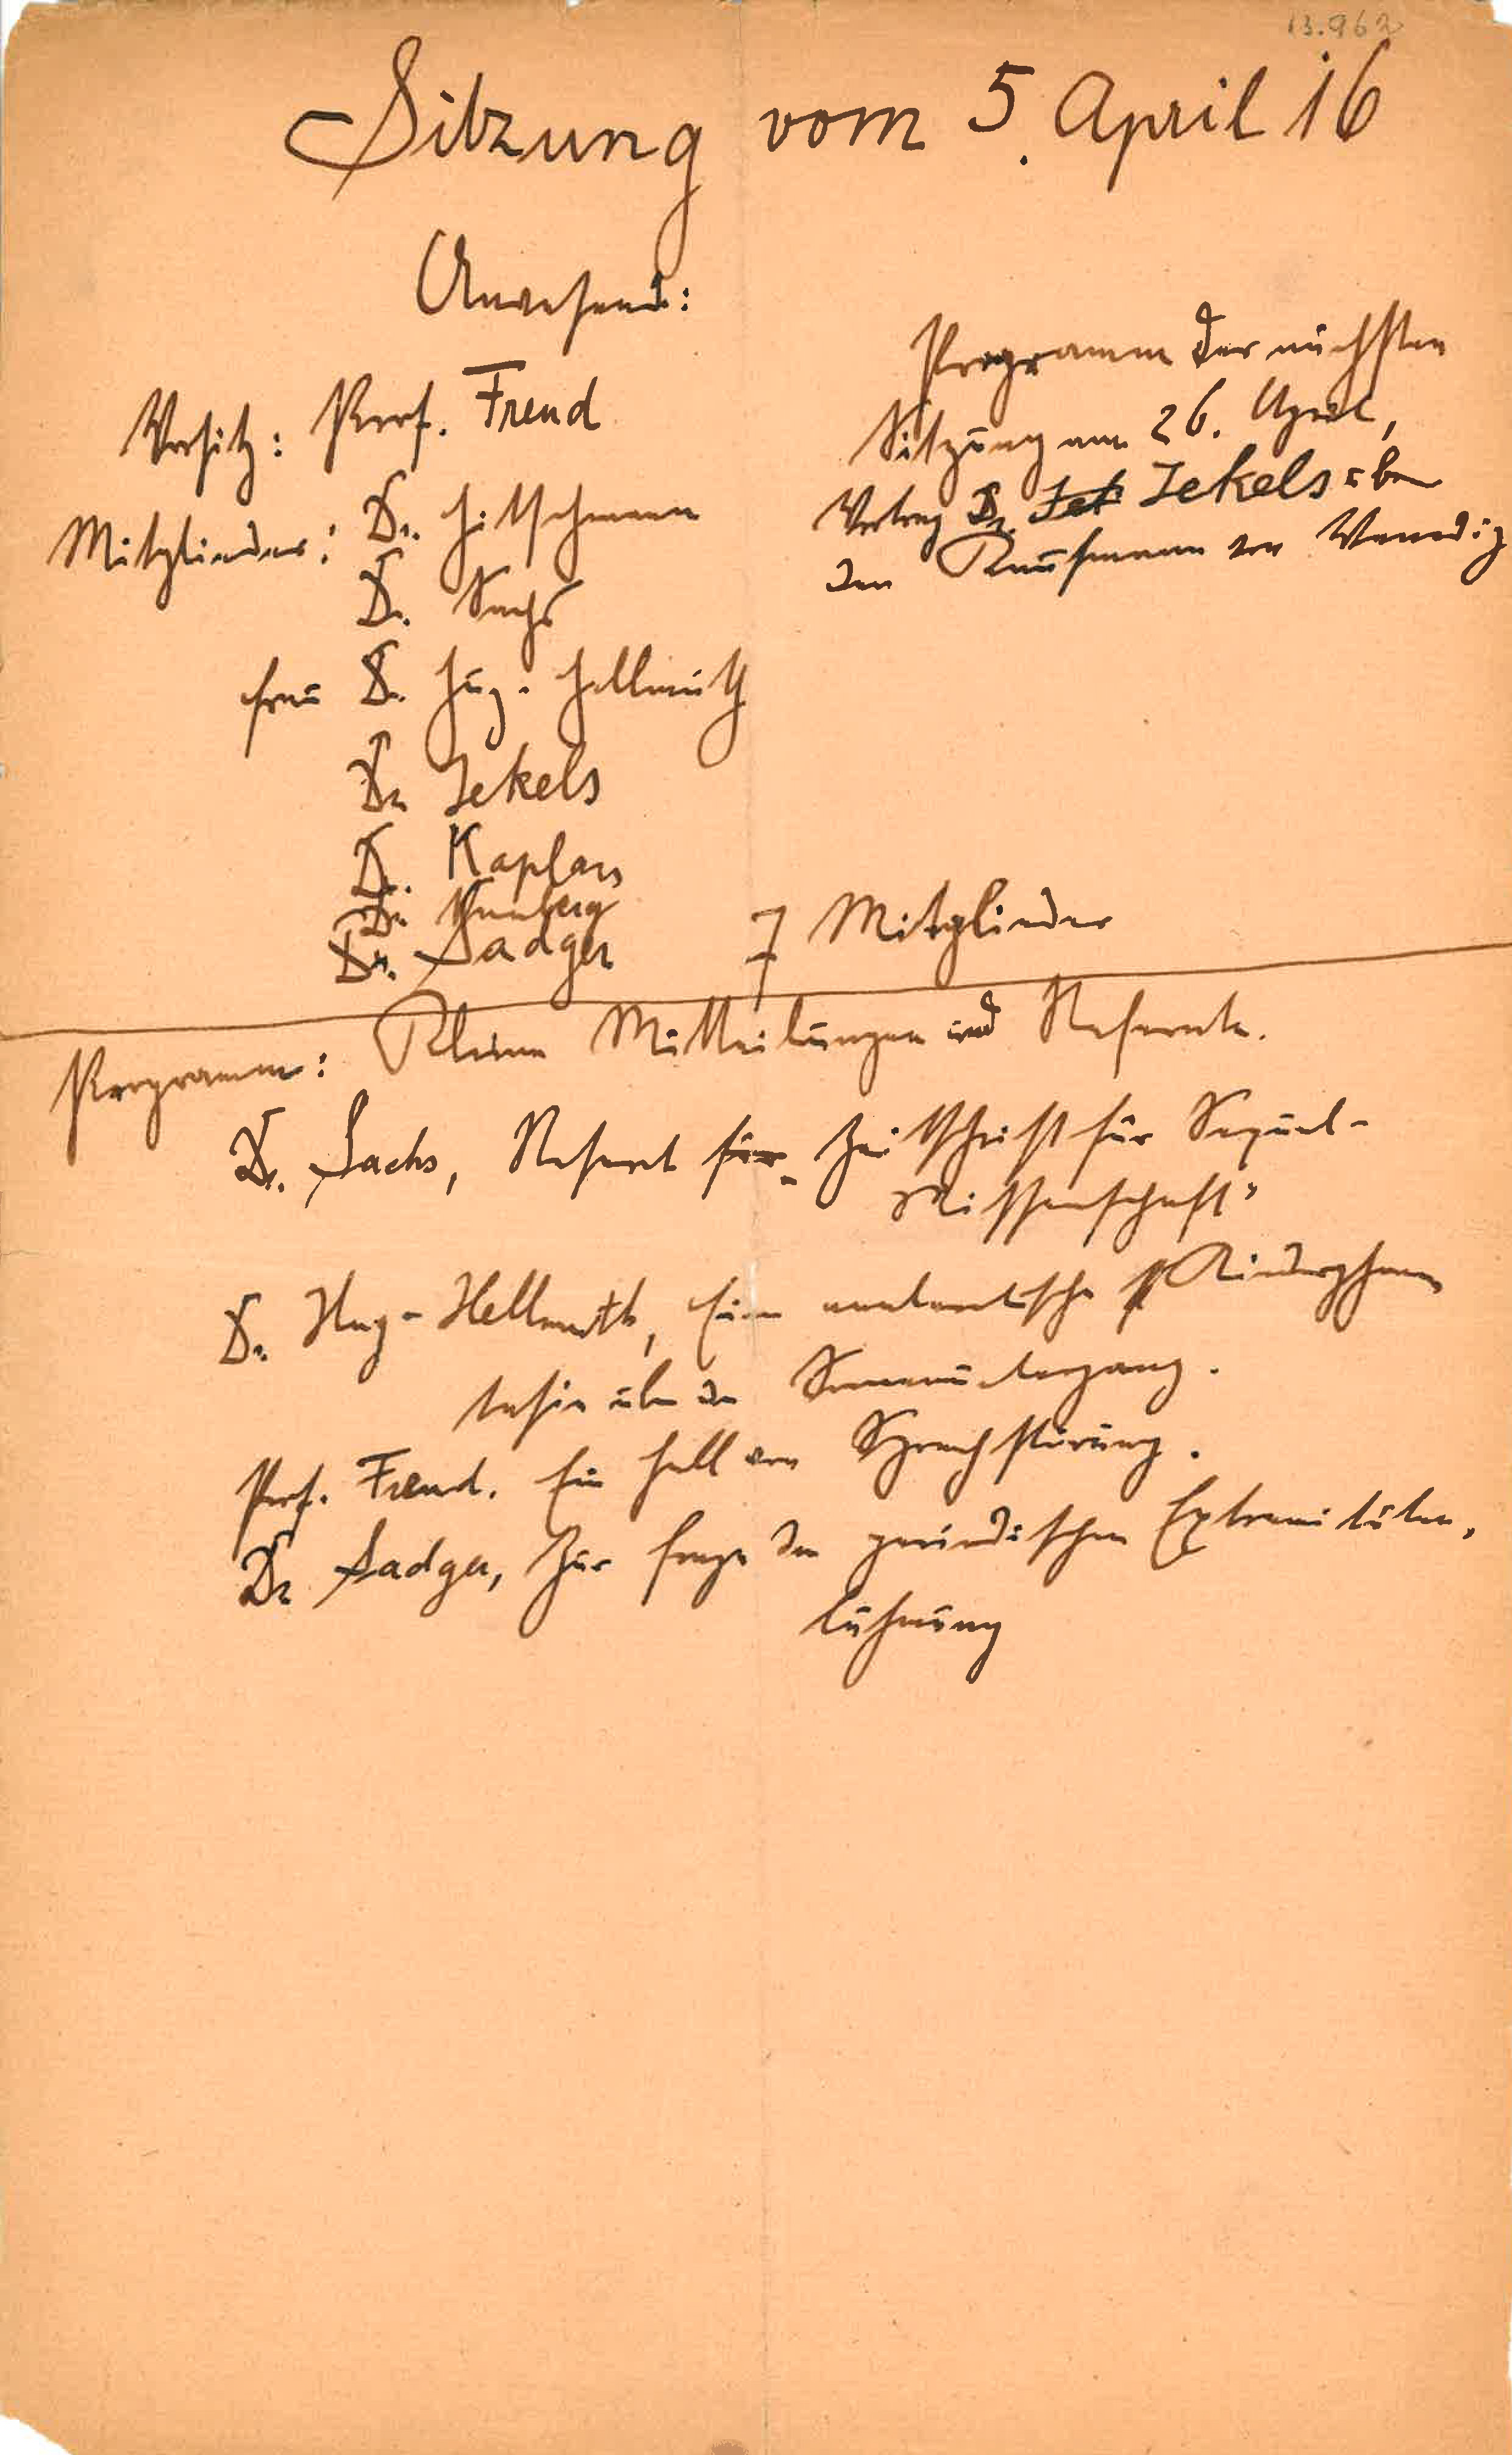 13.962
Sitzung vom 5. April 16
Anwesend:
Vorsitz: Prof. Freud
Mitglieder: Dr. Hitschmann
Dr. Sachs
Frau Dr. Hug-Hellmuth
Dr. Jekels
Dr. Kaplan
Dr. Nunberg
Dr. Sadger
7 Mitglieder
Programm der nächsten
Sitzung am 26. April,
Vortrag Dr. Jek Jekels über
den Kaufmann von Venedig
Programm: Kleine Mitteilungen und Referate.
Dr. Sachs, Referat für Zeitschrift für Sexual-
Wissenschaft"
Dr. Hug-Hellmuth, Eine Kinderphan
tasie über den Sonnenuntergang.
Prof. Freud. Ein Fall von Sprachstörung.
Dr. Sadger, Zur Frage der Extremitäten,
lähmung